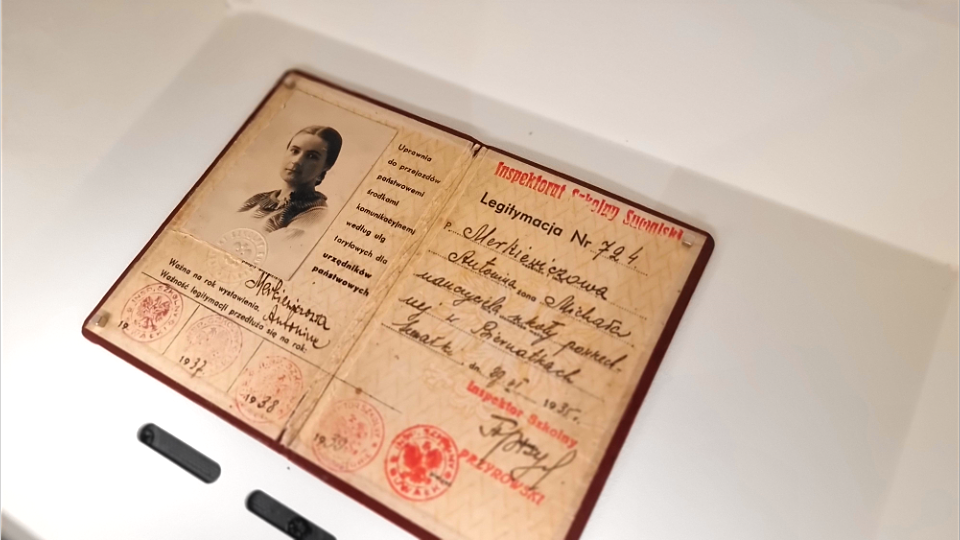 Uprawnia
do przejazdów
państwowemi
środkami
komunikacyjnemi
według ulg
taryfowych dla
urzędników
państwowych
Ważna na rok wystawienia.
Ważność legitymacji przedłuża się na rok:
19
1937
1938
1939
Inspektorat Szkolny Suwalski
Legitymacja Nr 724
P. Merkiewiczowa
Antonina żona Michała
nauczyciela szkoły powsz.
nej w Biernatkach
Suwałki, dn. 1935 r.
Inspektor Szkolny
PRZYROWSKI